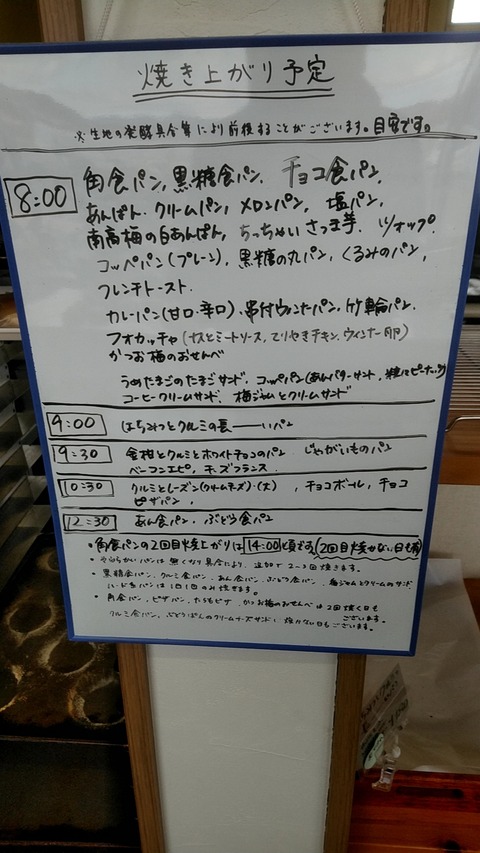 焼き上がり予定
※生地の発酵具合等により前後することがございます。目安です。
8:00
角食パン, 黒糖食パン, チョコ食パン,
あんぱん, クリームパン, メロンパン, 塩パン,
南高梅の白あんぱん, ちっちゃいさつま芋,
コッペパン(プレーン), 黒糖の丸パン, くるみのパン,
フレンチトースト.
カレーパン(甘口・辛口)・串付ウィンナーパン, 竹輪パン,
フォカッチャ(ナスとミートソース, てりやきチキン, ウィンナー卵)
かつお梅のおせんべ
うめたまごのたまごサンド, コッペパン(あんバターサンド, 粒ピーナッツ)
コーヒークリームサンド, 梅ジャムとクリームサンド
9:00 はちみつとクルミの長――いパン
9:30 金柑とクルミとホワイトチョコのパン じゃがいものパン
ベーコンエピ, チーズフランス
10:30 クルミとレーズン(クリームチーズ)・(大) , チョコボール, チョコ
ピザパン,
12:30 あん食パン, ぶどう食パン
・角食パンの2回目焼上がりは14:00頃です(2回目焼かない日も有)
・やわらかいパンは無くなり具合により, 追加で2~3回焼きます.
・黒糖食パン, クルミ食パン, あん食パン, ぶどう食パン, 梅ジャムとクリームのサンド
ハード系パンは1日1回のみ焼きます.
・角食パン, ピザパン, たらもピザ, かつお梅のおせんべは2回焼く日も
ございます.
クルミ食パン, ぶどうぱんのクリームチーズサンド, 焼かない日もございます.